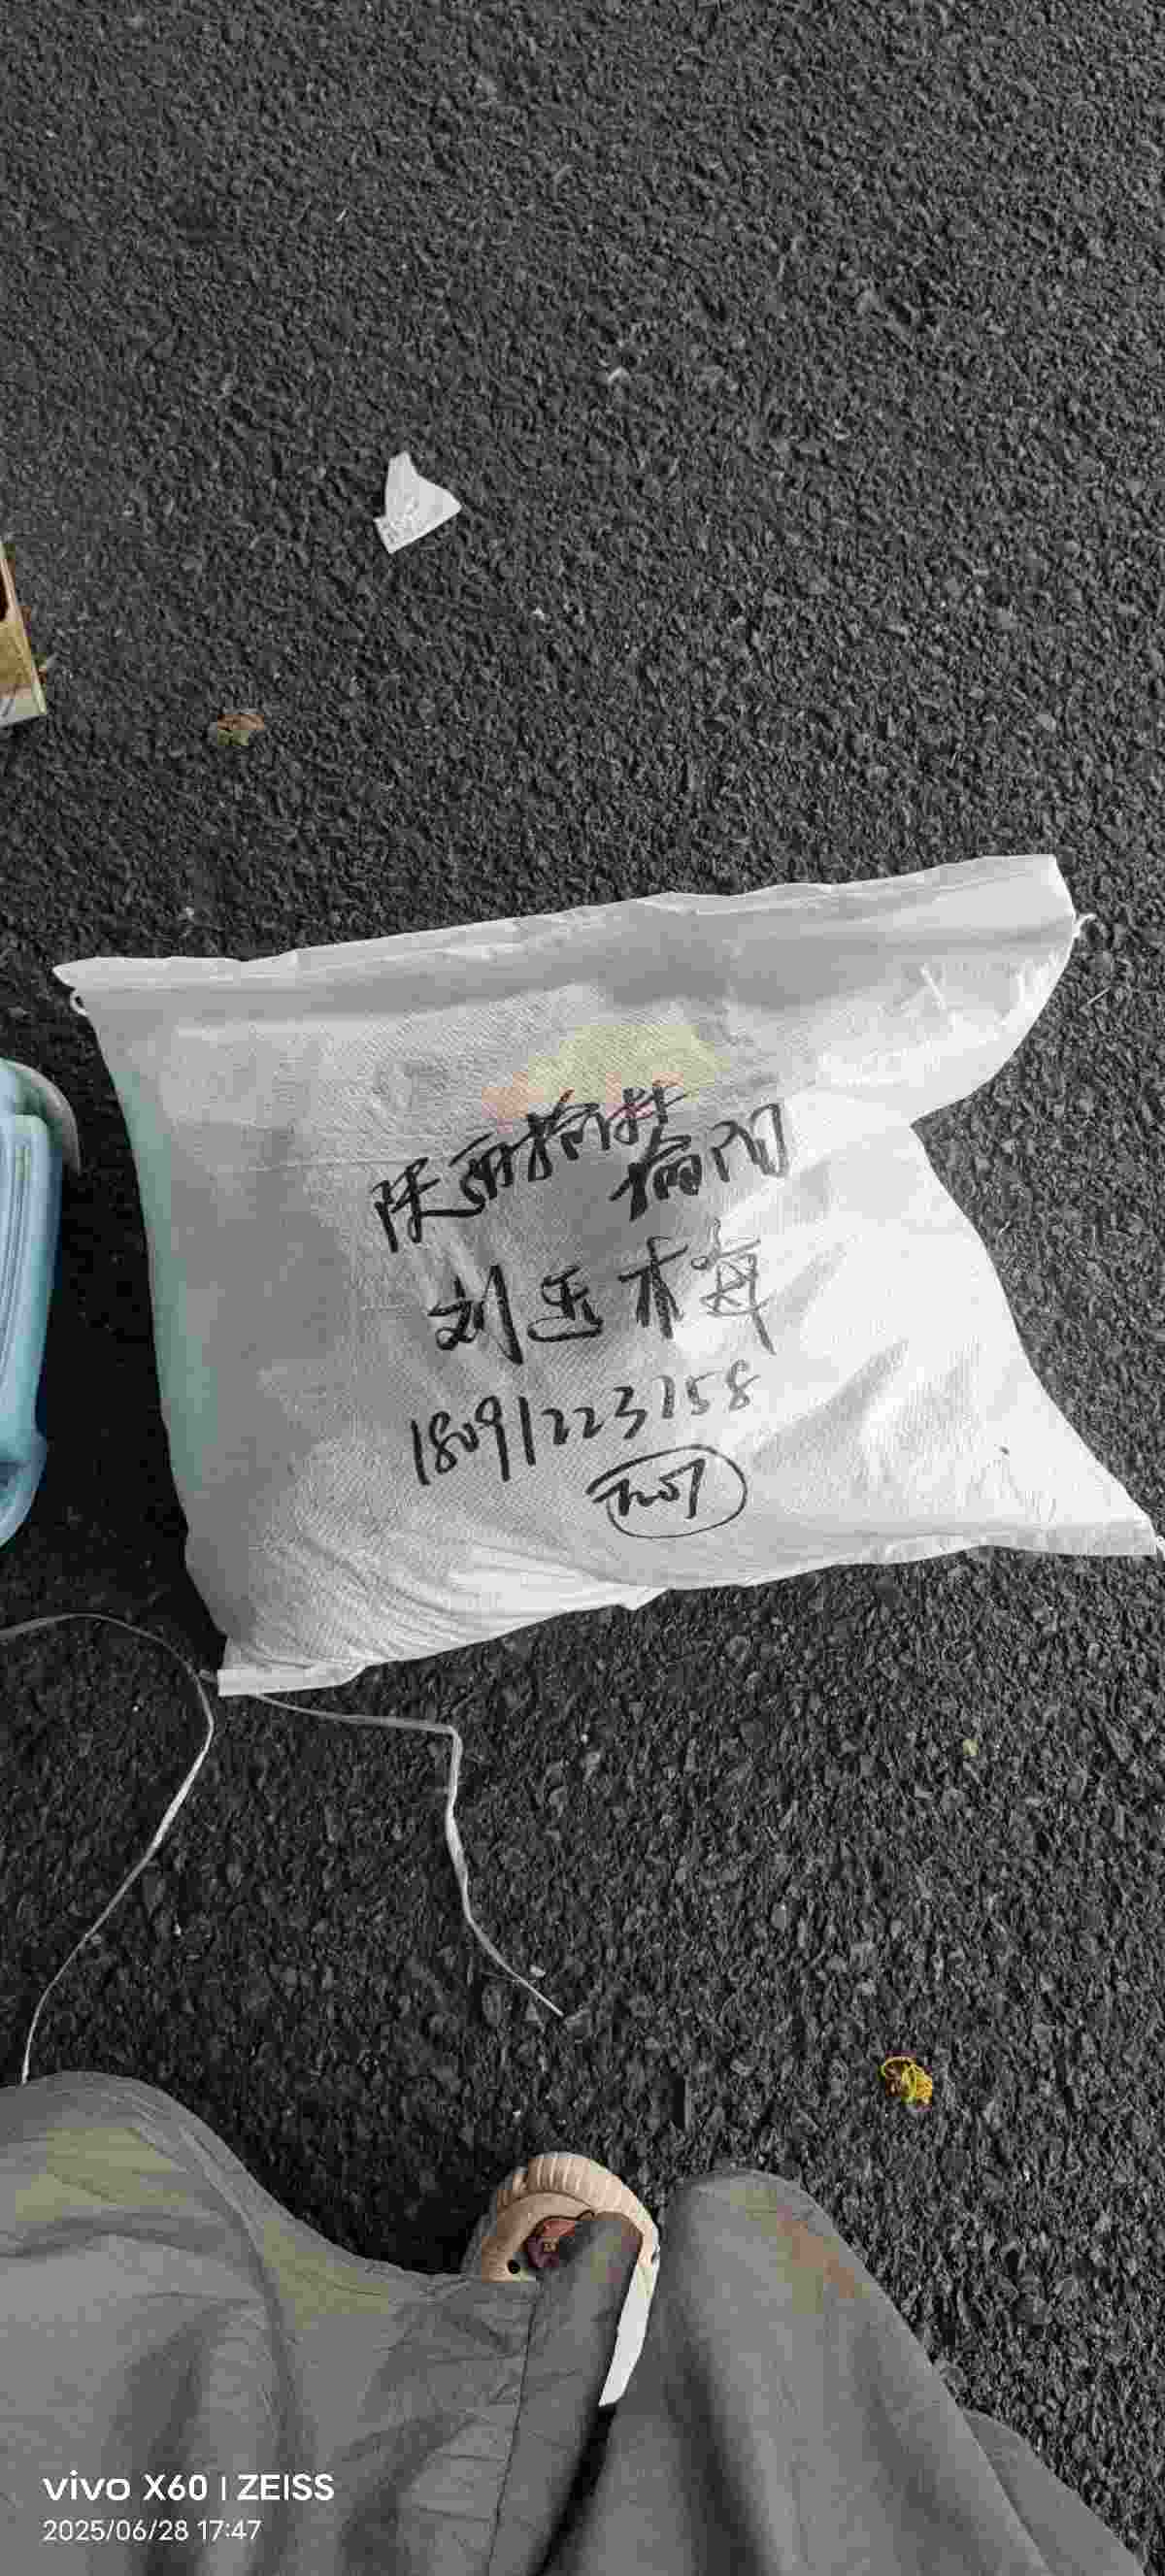 陕西榆林
榆阳
刘玉
18091223758
vivo X60 | ZEISS
2025/06/28 17:47